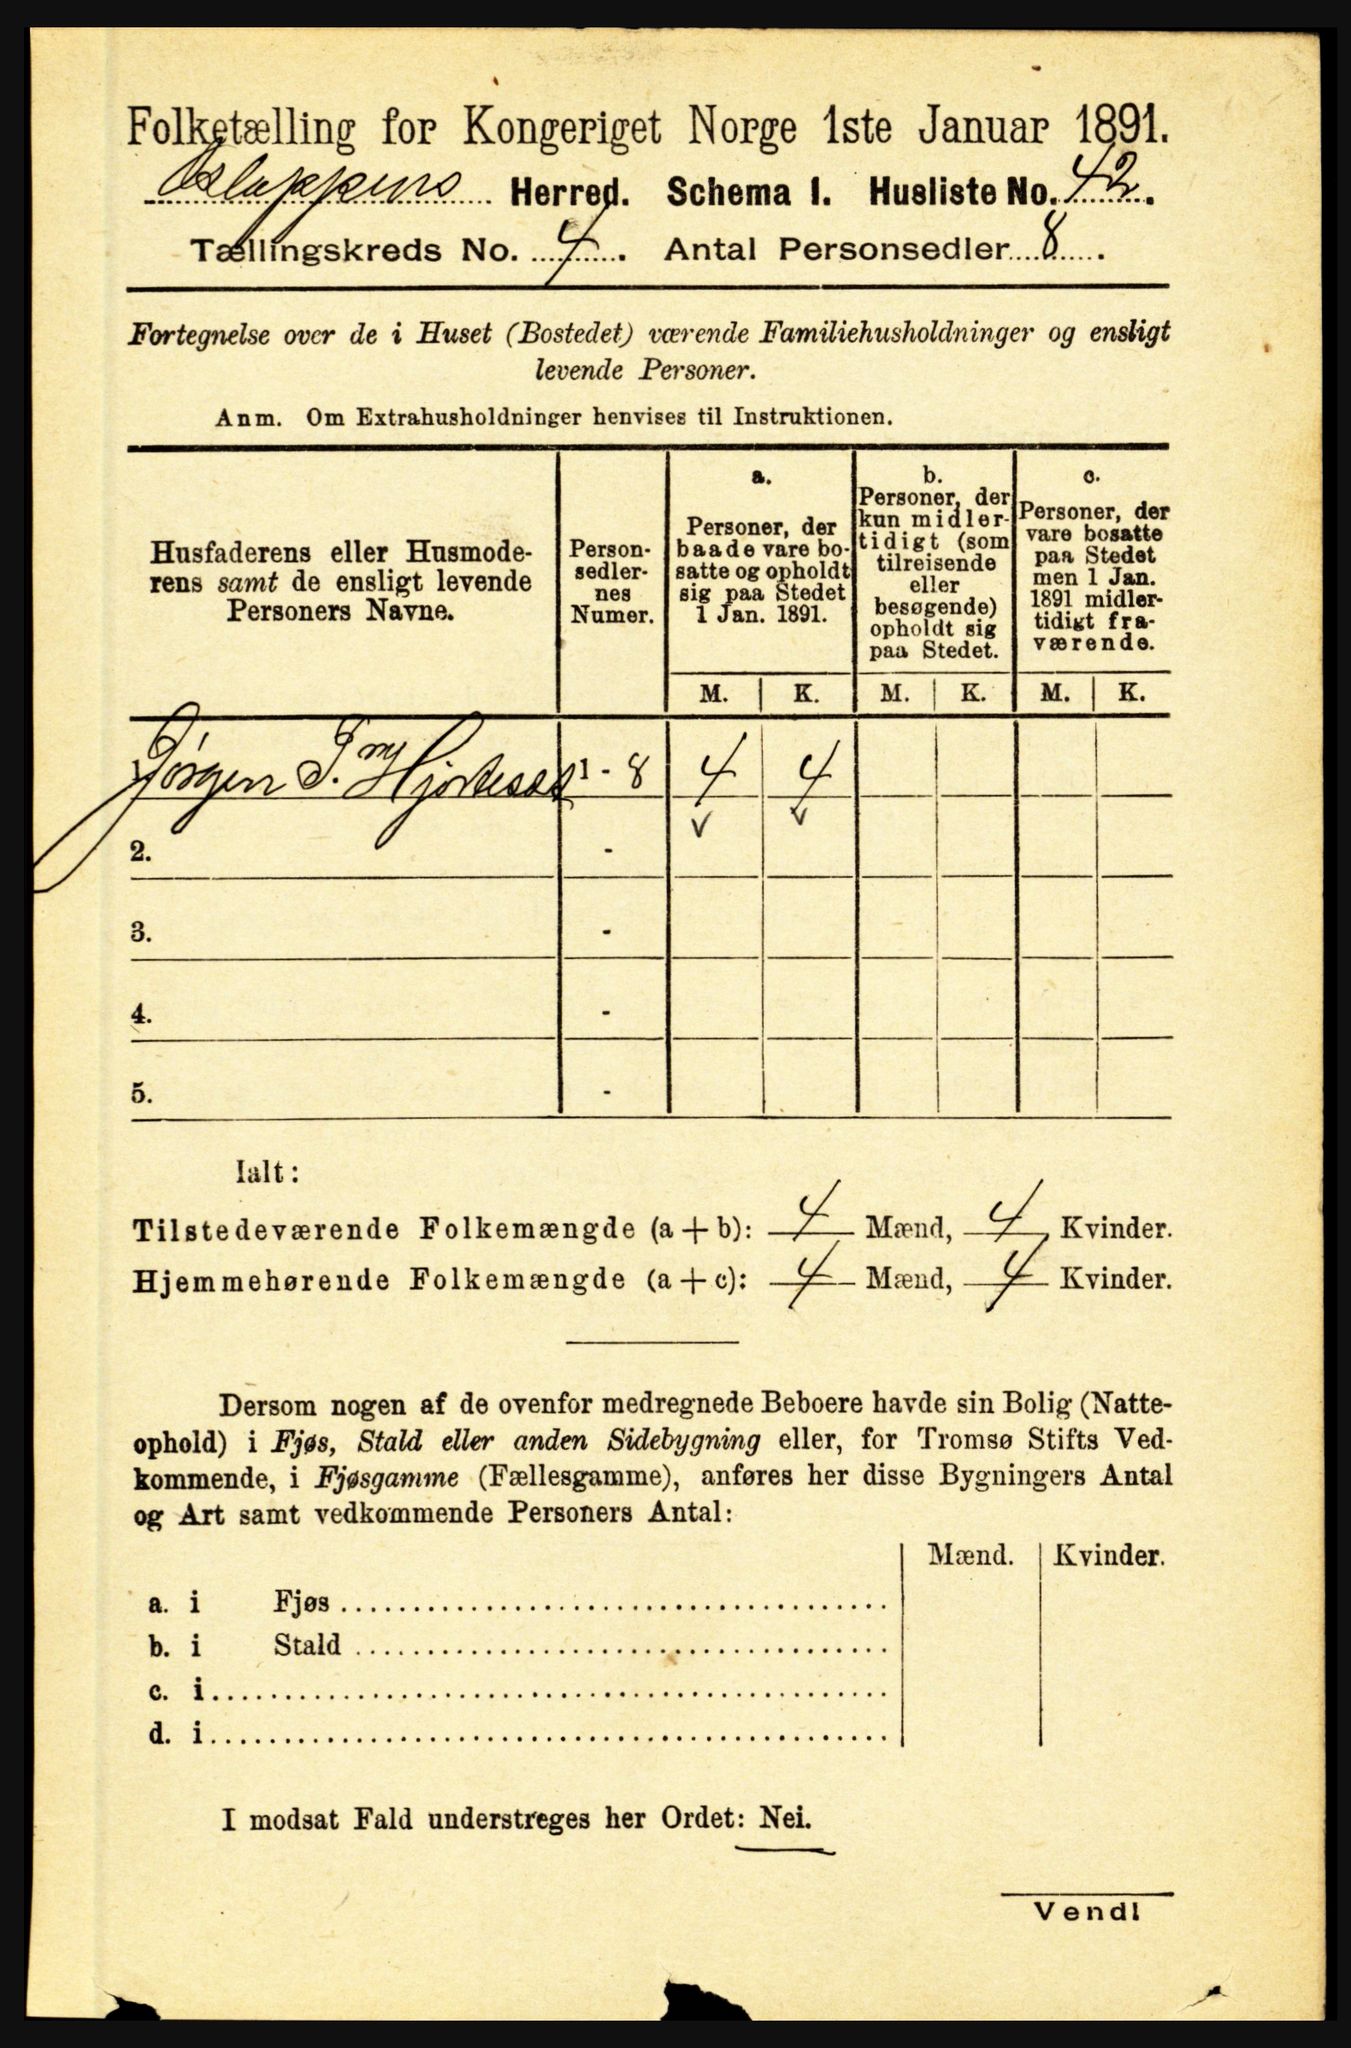 Folketælling for Kongeriget Norge 1ste Januar 1891.
Herred. Schema I. Husliste No. 42.
Tællingskreds No. 4. Antal Personsedler 8.
Fortegnelse over de i Huset (Bostedet) værende Familiehusholdninger og ensligt
levende Personer.
Anm. Om Extrahusholdninger henvises til Instruktionen.
Husfaderens eller Husmode-
rens samt de ensligt levende
Personers Navne.
Person-
sedler-
nes
Numer.
a.
Personer, der
baade vare bo-
satte og opholdt
sig paa Stedet
1 Jan. 1891.
b.
Personer, der
kun midler-
tidigt (som
tilreisende
eller
besøgende)
opholdt sig
paa Stedet.
c.
Personer, der
vare bosatte
paa Stedet
men 1 Jan.
1891 midler-
tidigt fra-
værende.
M. K. M. K. M. K.
Jørgen 1 - 8 4 4
2. -
3. -
4. -
5. -
Ialt:
Tilstedeværende Folkemængde (a + b): 4 Mænd, 4 Kvinder.
Hjemmehørende Folkemængde (a + c): 4 Mænd, 4 Kvinder.
Dersom nogen af de ovenfor medregnede Beboere havde sin Bolig (Natte-
ophold) i Fjøs, Stald eller anden Sidebygning eller, for Tromsø Stifts Ved-
kommende, i Fjøsgamme (Fællesgamme), anføres her disse Bygningers Antal
og Art samt vedkommende Personers Antal:
Mænd. Kvinder.
a. i Fjøs
b. i Stald
c. i
d. i
I modsat Fald understreges her Ordet: Nei.
Vend!